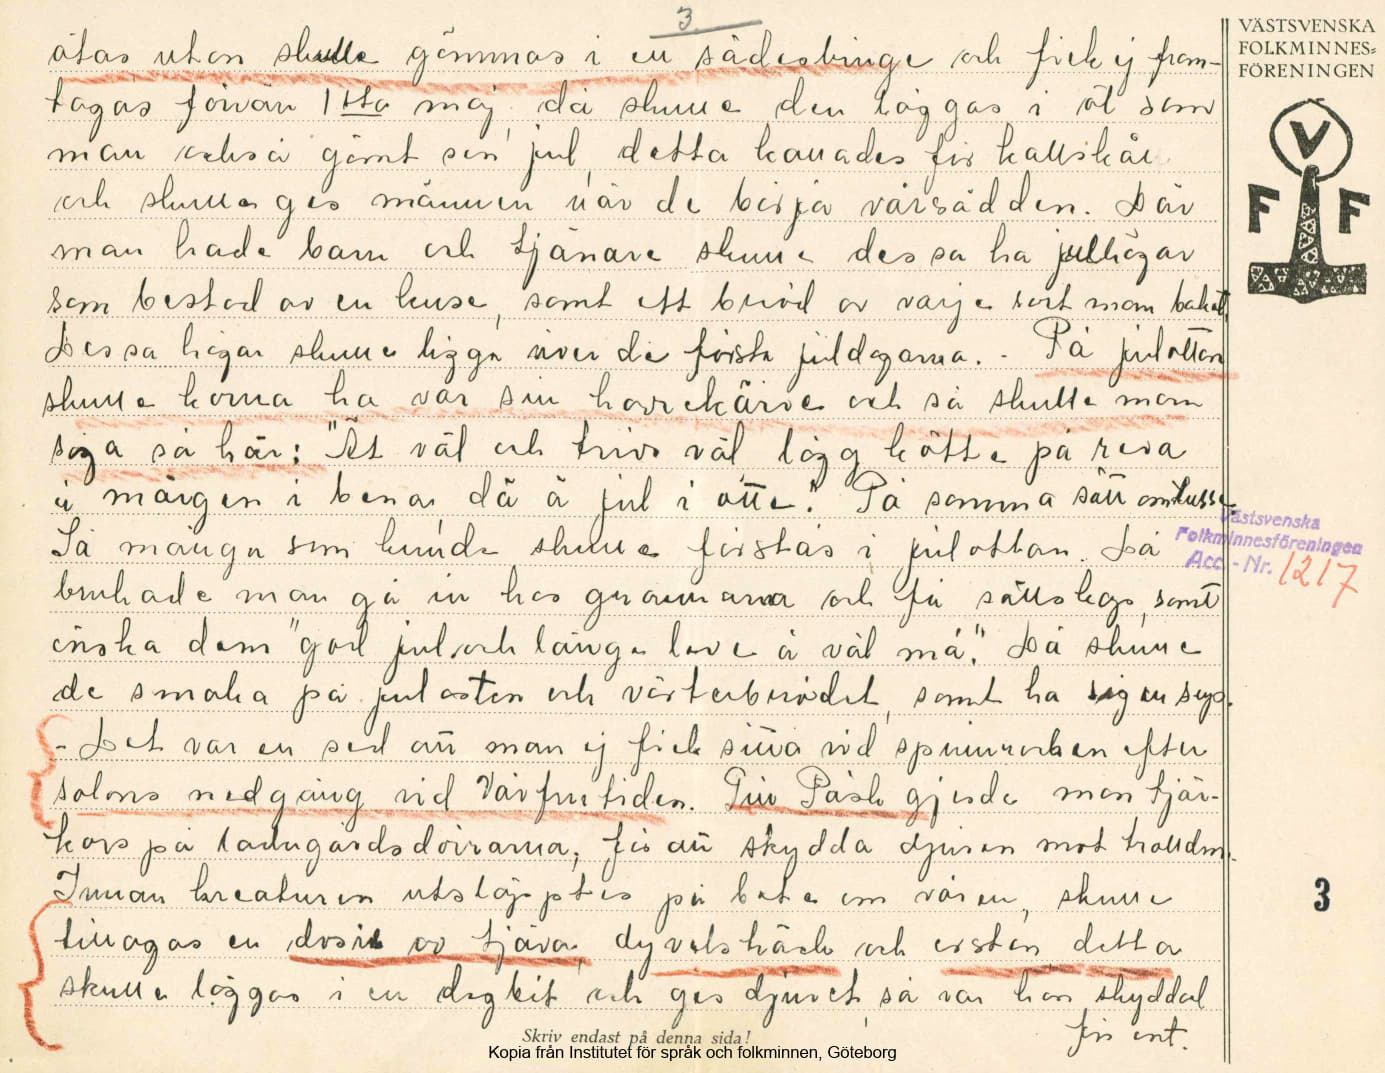 3
VÄSTSVENSKA
FOLKMINNES=
FÖRENINGEN
V
F F
ätas utan skulle gömmas i en sädesbinge och fick ej fram-
tagas förrän 1sta maj, då skulle den läggas i öl som
man också gömt sen jul, detta kallades för kallskål
och skulle ges männen när de börja vårsådden. Där
man hade barn och tjänare skulle dessa ha julhögar
som bestod av en kuse, samt ett bröd av varje sort man bakat.
Dessa högar skulle ligga över de första juldagarna. - På julottan
skulle korna ha var sin havrekärve och så skulle man
säga så här: "Ät väl och trivs väl lägg kötte på reva
å märgen i bena, dä ä jul i otte". På samma sätt om
Så många som kunde skulle förstås i julottan. Då
brukade man gå in hos grannarna och få sällskap, samt
önska dem "god jul och länge leve å väl må". Då skulle
de smaka på julosten och vörtebrödet, samt ha sig en sup.
- Det var en sed att man ej fick sitta vid spinnrocken efter
solens nedgång vid Vårfrutiden. Till Påsk gjorde man tjär-
kors på ladugårdsdörrarna, för att skydda djuren mot trolldm.
Innan kreaturen utsläpptes på bete om våren, skulle
tillagas en dosis av tjära, dyvelsträck och orsten, detta
skulle läggas i en degbit och ges djuret, så var han skyddad
för ont.
Västsvenska
Folkminnesföreningen
Acc. - Nr. 1217
3
Skriv endast på denna sida!
Kopia från Institutet för språk och folkminnen, Göteborg